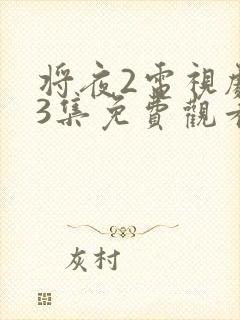 将夜2雷視劇
3集免費觀看
灰村